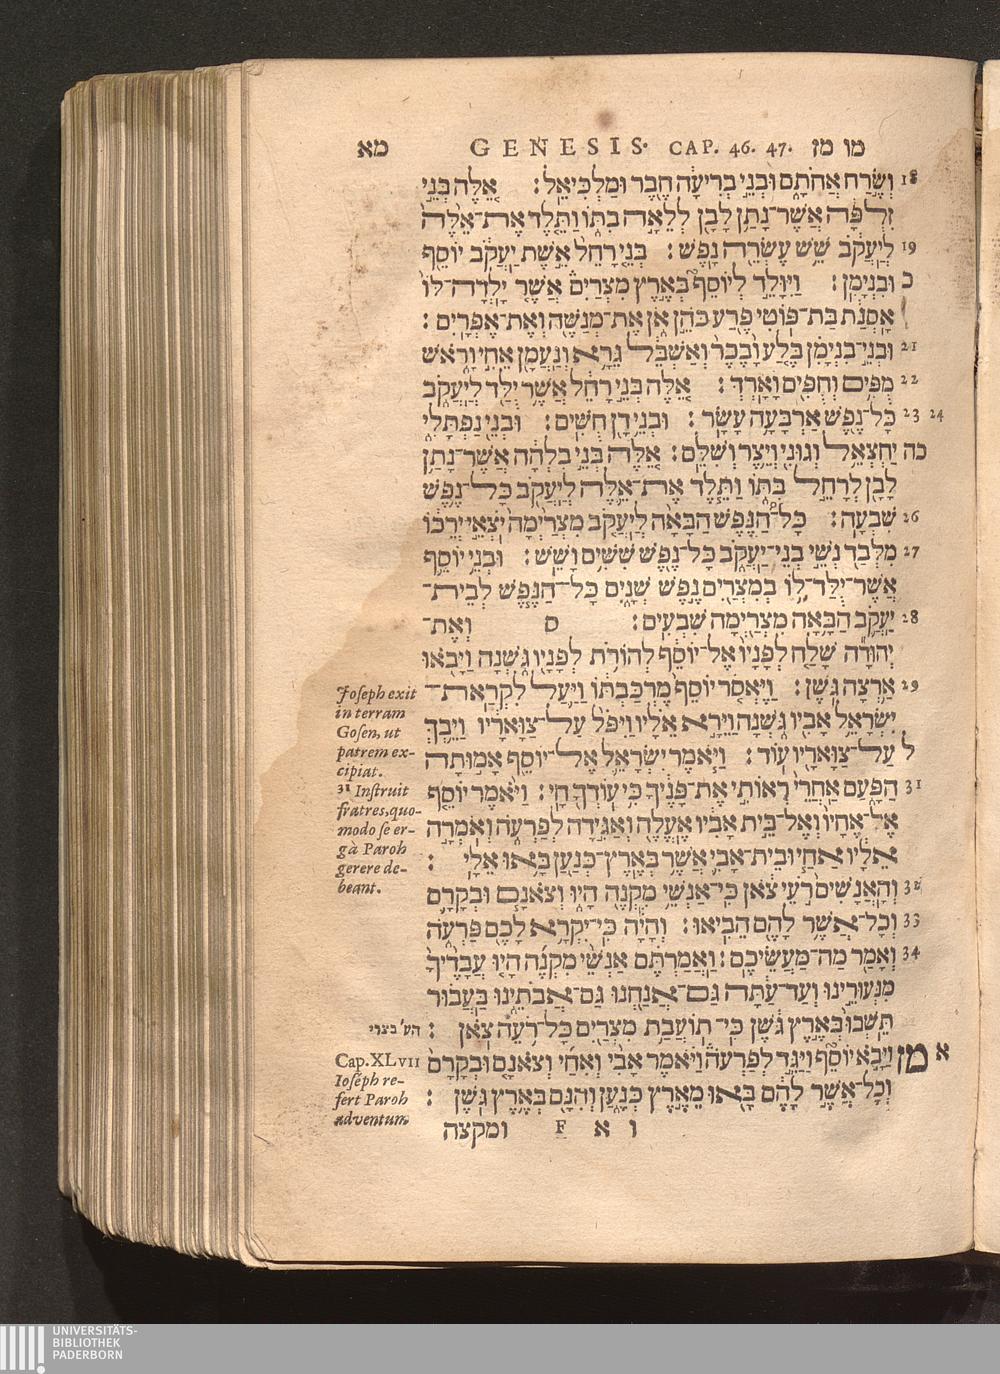 מא GENESIS. CAP. 46. 47. מו מז
18 וְשֶׂרַח אֲחֹתָם וּבְנֵי בְרִיעָה חֶבֶר וּמַלְכִּיאֵל׃ אֵלֶּה בְּנֵי
זִלְפָּה אֲשֶׁר־נָתַן לָבָן לְלֵאָה בִתּוֹ וַתֵּלֶד אֶת־אֵלֶּה
19 לְיַעֲקֹב שֵׁשׁ עֶשְׂרֵה נָפֶשׁ׃ בְּנֵי רָחֵל אֵשֶׁת יַעֲקֹב יוֹסֵף
כ וּבִנְיָמִן׃ וַיִּוָּלֵד לְיוֹסֵף בְּאֶרֶץ מִצְרַיִם אֲשֶׁר יָלְדָה־לּוֹ
אָסְנַת בַּת־פּוֹטִי פֶרַע כֹּהֵן אֹן אֶת־מְנַשֶּׁה וְאֶת־אֶפְרָיִם׃
21 וּבְנֵי בִנְיָמִן בֶּלַע וָבֶכֶר וְאַשְׁבֵּל גֵּרָא וְנַעֲמָן אֵחִי וָרֹאשׁ
22 מֻפִּים וְחֻפִּים וָאָרְדְּ׃ אֵלֶּה בְּנֵי רָחֵל אֲשֶׁר יֻלַּד לְיַעֲקֹב
23 24 כָּל־נֶפֶשׁ אַרְבָּעָה עָשָׂר׃ וּבְנֵי דָן חֻשִׁים׃ וּבְנֵי נַפְתָּלִי
כה יַחְצְאֵל וְגוּנִי וְיֵצֶר וְשִׁלֵּם׃ אֵלֶּה בְּנֵי בִלְהָה אֲשֶׁר־נָתַן
לָבָן לְרָחֵל בִּתּוֹ וַתֵּלֶד אֶת־אֵלֶּה לְיַעֲקֹב כָּל־נֶפֶשׁ
26 שִׁבְעָה׃ כָּל־הַנֶּפֶשׁ הַבָּאָה לְיַעֲקֹב מִצְרַיְמָה יֹצְאֵי יְרֵכוֹ
27 מִלְּבַד נְשֵׁי בְנֵי־יַעֲקֹב כָּל־נֶפֶשׁ שִׁשִּׁים וָשֵׁשׁ׃ וּבְנֵי יוֹסֵף
אֲשֶׁר־יֻלַּד־לוֹ בְמִצְרַיִם נֶפֶשׁ שְׁנָיִם כָּל־הַנֶּפֶשׁ לְבֵית־
28 יַעֲקֹב הַבָּאָה מִצְרַיְמָה שִׁבְעִים׃ ס וְאֶת־
יְהוּדָה שָׁלַח לְפָנָיו אֶל־יוֹסֵף לְהוֹרֹת לְפָנָיו גֹּשְׁנָה וַיָּבֹאוּ
29 אַרְצָה גֹּשֶׁן׃ וַיֶּאְסֹר יוֹסֵף מֶרְכַּבְתּוֹ וַיַּעַל לִקְרַאת־
יִשְׂרָאֵל אָבִיו גֹּשְׁנָה וַיֵּרָא אֵלָיו וַיִּפֹּל עַל־צַוָּארָיו וַיֵּבְךְּ
ל עַל־צַוָּארָיו עוֹד׃ וַיֹּאמֶר יִשְׂרָאֵל אֶל־יוֹסֵף אָמוּתָה
31 הַפָּעַם אַחֲרֵי רְאוֹתִי אֶת־פָּנֶיךָ כִּי עוֹדְךָ חָי׃ וַיֹּאמֶר יוֹסֵף
אֶל־אֶחָיו וְאֶל־בֵּית אָבִיו אֶעֱלֶה וְאַגִּידָה לְפַרְעֹה וְאֹמְרָה
אֵלָיו אַחַי וּבֵית־אָבִי אֲשֶׁר בְּאֶרֶץ־כְּנַעַן בָּאוּ אֵלָי׃
32 וְהָאֲנָשִׁים רֹעֵי צֹאן כִּי־אַנְשֵׁי מִקְנֶה הָיוּ וְצֹאנָם וּבְקָרָם
33 וְכָל־אֲשֶׁר לָהֶם הֵבִיאוּ׃ וְהָיָה כִּי־יִקְרָא לָכֶם פַּרְעֹה
34 וְאָמַר מַה־מַּעֲשֵׂיכֶם׃ וַאֲמַרְתֶּם אַנְשֵׁי מִקְנֶה הָיוּ עֲבָדֶיךָ
מִנְּעוּרֵינוּ וְעַד־עַתָּה גַּם־אֲנַחְנוּ גַּם־אֲבֹתֵינוּ בַּעֲבוּר
תֵּשְׁבוּ בְּאֶרֶץ גֹּשֶׁן כִּי־תוֹעֲבַת מִצְרַיִם כָּל־רֹעֵה צֹאן׃
א מז וַיָּבֹא יוֹסֵף וַיַּגֵּד לְפַרְעֹה וַיֹּאמֶר אָבִי וְאַחַי וְצֹאנָם וּבְקָרָם
וְכָל־אֲשֶׁר לָהֶם בָּאוּ מֵאֶרֶץ כְּנָעַן וְהִנָּם בְּאֶרֶץ גֹּשֶׁן׃
ו א F ומקצה
Joseph exit
in terram
Gosen, ut
patrem ex-
cipiat.
31 Instruit
fratres, quo-
modo se er-
gà Paroh
gerere de-
beant.
Cap. XLVII
Ioseph re-
fert Paroh
adventum
UNIVERSITÄTS-
BIBLIOTHEK
PADERBORN